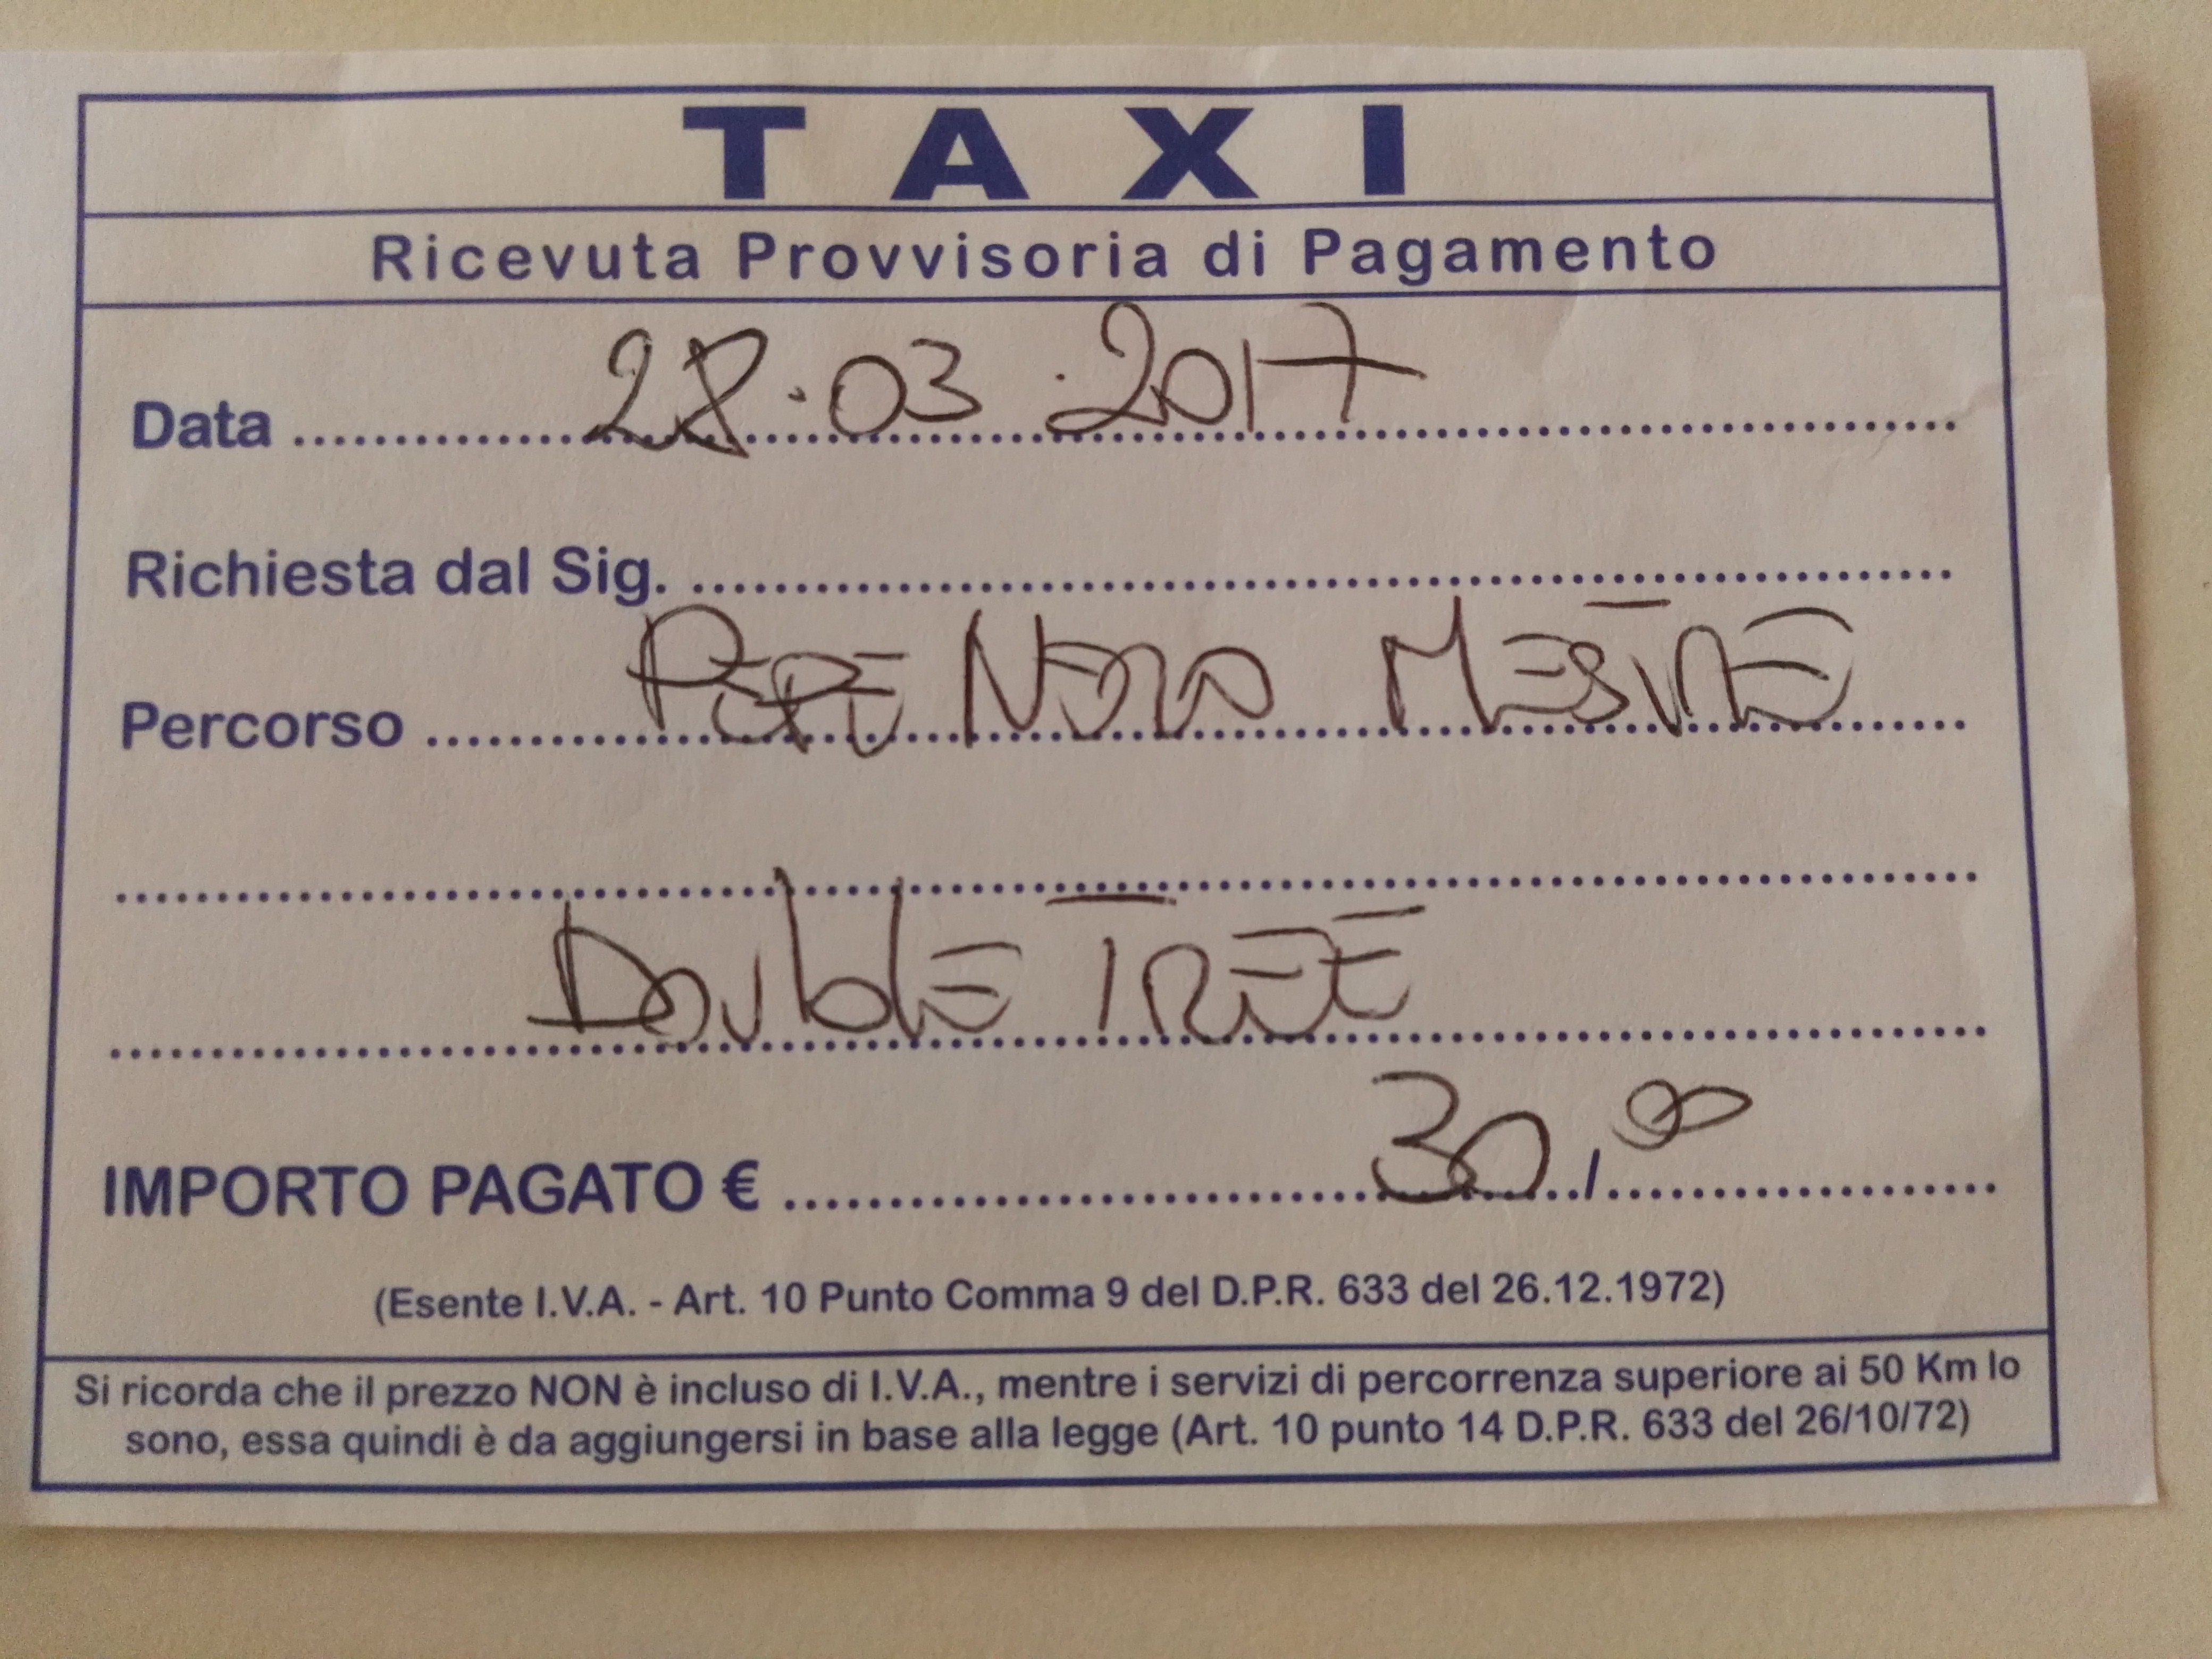 TAXI
Ricevuta Provvisoria di Pagamento
Data 28.03.2017
Richiesta dal Sig.
Percorso PEPE NERO MESTRE
DOUblE TREE
IMPORTO PAGATO € 30,00
(Esente I.V.A. - Art. 10 Punto Comma 9 del D.P.R. 633 del 26.12.1972)
Si ricorda che il prezzo NON è incluso di I.V.A., mentre i servizi di percorrenza superiore ai 50 Km lo
sono, essa quindi è da aggiungersi in base alla legge (Art. 10 punto 14 D.P.R. 633 del 26/10/72)